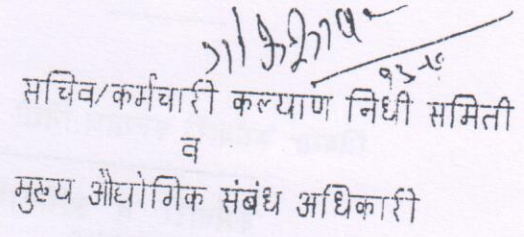 सचिव/कर्मचारी कल्याण निधी समिती
व
मुख्य औद्योगिक संबंध अधिकारी